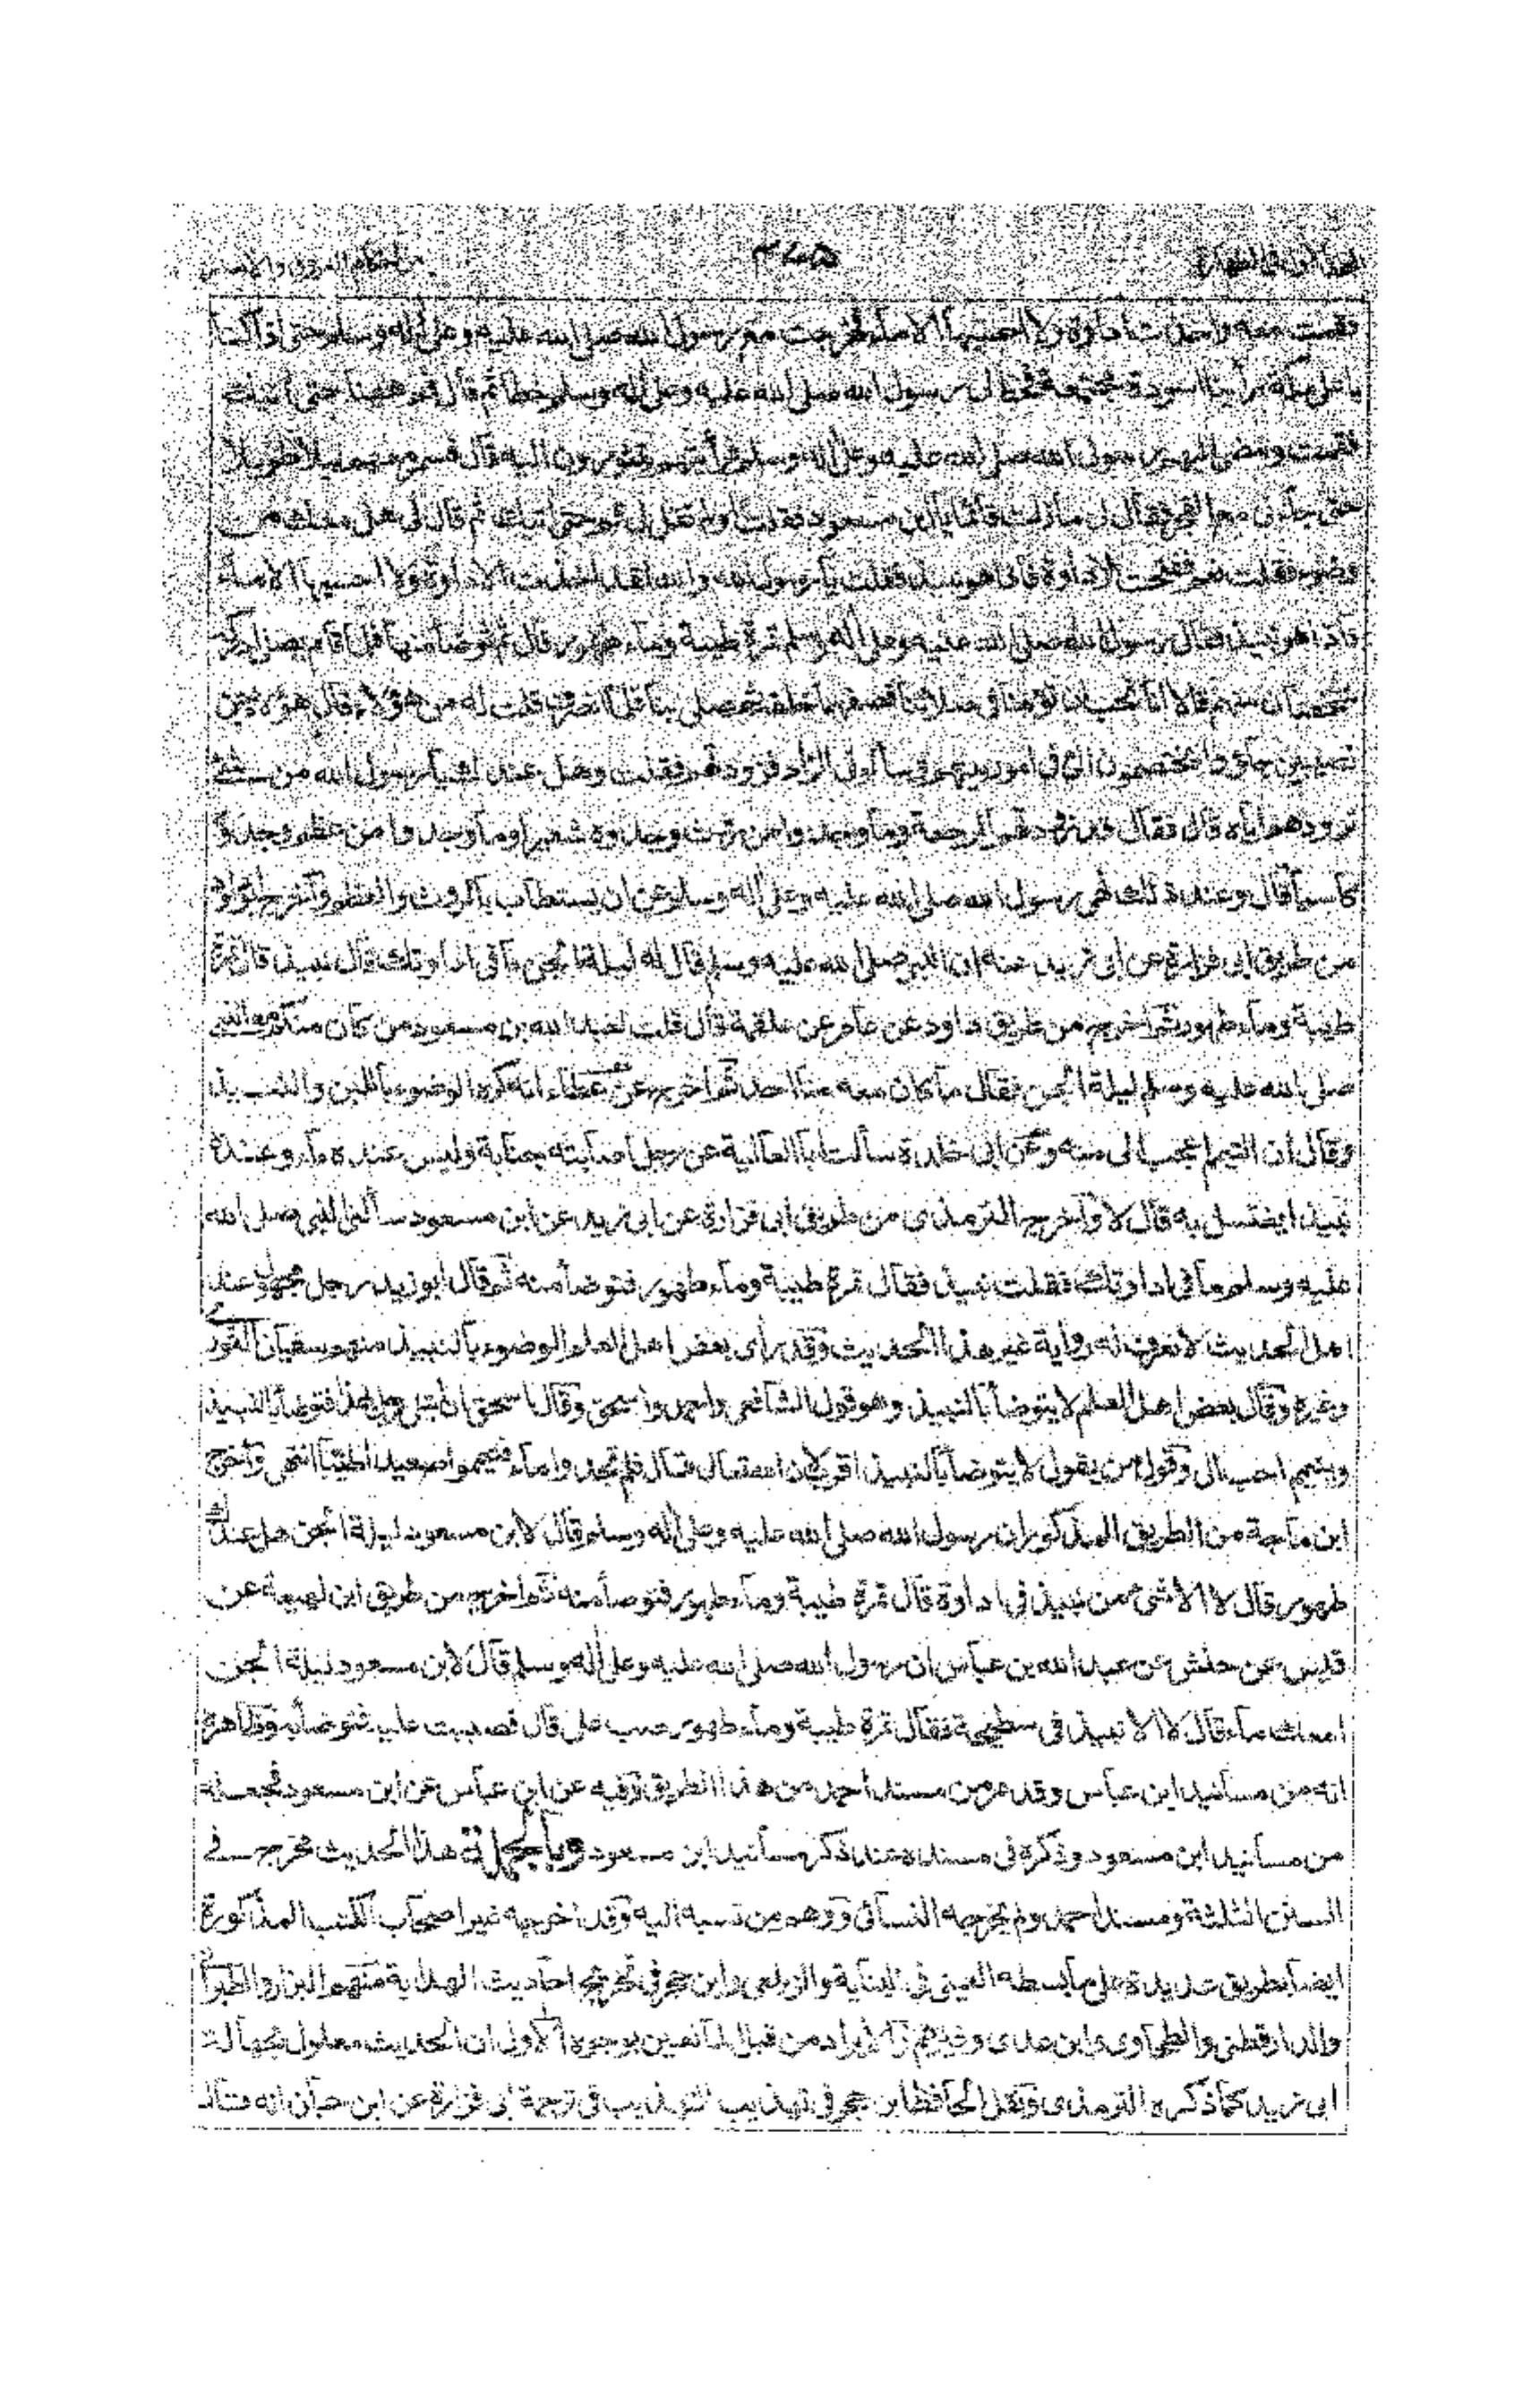 ٣٧٥
فقمت معه واخذت اداوة ولا احسبها الا ماء فخرجت مع رسول الله صلى الله عليه وعلى اله وسلم حتى اذا كنا
باعلى مكة رأيت اسودة مجتمعة فخط لى رسول الله صلى الله عليه وعلى اله وسلم خطا ثم قال قم ههنا حتى اتيك
فقمت ومضى اليهم رسول الله صلى الله عليه وعلى اله وسلم فرأيتهم يتثورون اليه قال فسمر معهم ليلا طويلا
حتى جاءنى مع الفجر فقال لى ما زلت قائما يا ابن مسعود فقلت او لم تقل لى قم حتى اتيك ثم قال لى هل معك من
وضوء فقلت نعم ففتحت الاداوة فاذا هو نبيذ فقلت يا رسول الله والله لقد اخذت الاداوة ولا احسبها الا ماء
فاذا هو نبيذ فقال رسول الله صلى الله عليه وعلى اله وسلم تمرة طيبة وماء طهور قال ثم توضأ منها فلما قام يصلى ادركه
شخصان منهم قالا انا نحب ان تؤمنا فى صلاتنا فصفهما خلفه ثم صلى بنا فلما انصرف قلت له من هؤلاء قال هؤلاء جن
نصيبين جاؤا يختصمون الى فى امور بينهم وسألونى الزاد فزودتهم فقلت وهل عندك يا رسول الله من شئ
تزودهم اياه قال فقال قد زودتهم الرجعة وما وجدوا من روث وجدوه شعيرا وما وجدوا من عظم وجدوه
كاسيا قال وعند ذلك نهى رسول الله صلى الله عليه وعلى اله وسلم عن ان يستطاب بالروث والعظم وآخرج ابو داود
من طريق ابى فزارة عن ابى زيد عنه ان النبى صلى الله عليه وسلم قال له ليلة الجن ما فى اداوتك قال نبيذ قال تمرة
طيبة وماء طهور ثم اخرج من طريق داود عن عامر عن علقمة قال قلت لعبد الله بن مسعود من كان منكم مع النبى
صلى الله عليه وسلم ليلة الجن فقال ما كان معه منا احد ثم اخرج عن عطاء انه كره الوضوء باللبن والنبيذ
وقال ان التيمم اعجب الى منه وعن ابى خلدة سألت ابا العالية عن رجل اصابته جنابة وليس عنده ماء وعنده
نبيذ ايغتسل به قال لا وآخرج الترمذى من طريق ابى فزارة عن ابى زيد عن ابن مسعود سألنى النبى صلى الله
عليه وسلم ما فى اداوتك فقلت نبيذ فقال تمرة طيبة وماء طهور فتوضأ منه ثم قال ابو زيد رجل مجهول عند
اهل الحديث لا نعرف له رواية غير هذا الحديث وقد رأى بعض اهل العلم الوضوء بالنبيذ منهم سفيان الثورى
وغيره وقال بعض اهل العلم لا يتوضأ بالنبيذ وهو قول الشافعى واحمد واسحق وقال اسحق ان ابتلى رجل بهذا فتوضأ بالنبيذ
وتيمم احب الى وقول من يقول لا يتوضأ بالنبيذ اقرب لان الله تعالى قال فلم تجدوا ماء فتيمموا صعيدا طيبا انتهى وآخرج
ابن ماجة من الطريق المذكور ان رسول الله صلى الله عليه وعلى اله وسلم قال لابن مسعود ليلة الجن هل عندك
طهور قال لا الا شئ من نبيذ فى اداوة قال تمرة طيبة وماء طهور فتوضأ منه ثم اخرج من طريق ابن لهيعة عن
قيس عن حنش عن عبد الله بن عباس ان رسول الله صلى الله عليه وعلى اله وسلم قال لابن مسعود ليلة الجن
امعك ماء قال لا الا نبيذ فى سطيحة فقال تمرة طيبة وماء طهور صب على قال فصببت عليه فتوضأ به وظاهره
انه من مسانيد ابن عباس وقد مر من مسند احمد من هذا الطريق وفيه عن ابن عباس عن ابن مسعود فجعله
من مسانيد ابن مسعود وذكره فى مسنده عند ذكر مسانيد ابن مسعود وبالجملة هذا الحديث مخرج فى
السنن الثلثة ومسند احمد ولم يخرجه النسائى ووهم من نسبه اليه وقد اخرجه غير اصحاب الكتب المذكورة
ايضا بطريق عديدة على ما بسطه العينى فى البناية والزيلعى وابن حجر فى تخريج احاديث الهداية منهم البزار والطبرانى
والدارقطنى والطحاوى وابن عدى وغيرهم الايراد من قبل المانعين بوجوه الاول ان الحديث معلول بجهالة
ابى زيد كما ذكره الترمذى ونقل الحافظ ابن حجر فى تهذيب التهذيب فى ترجمة ابى فزارة عن ابن حبان انه قال